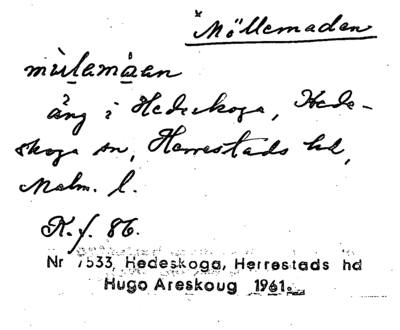 * Möllemaden
mùlamåen
äng i Hedeskoga, Hede-
skoga sn, Herrestads hd,
Malm. l.
K.f. 86.
Nr 7533, Hedeskoga, Herrestads hd
Hugo Areskoug 1961.